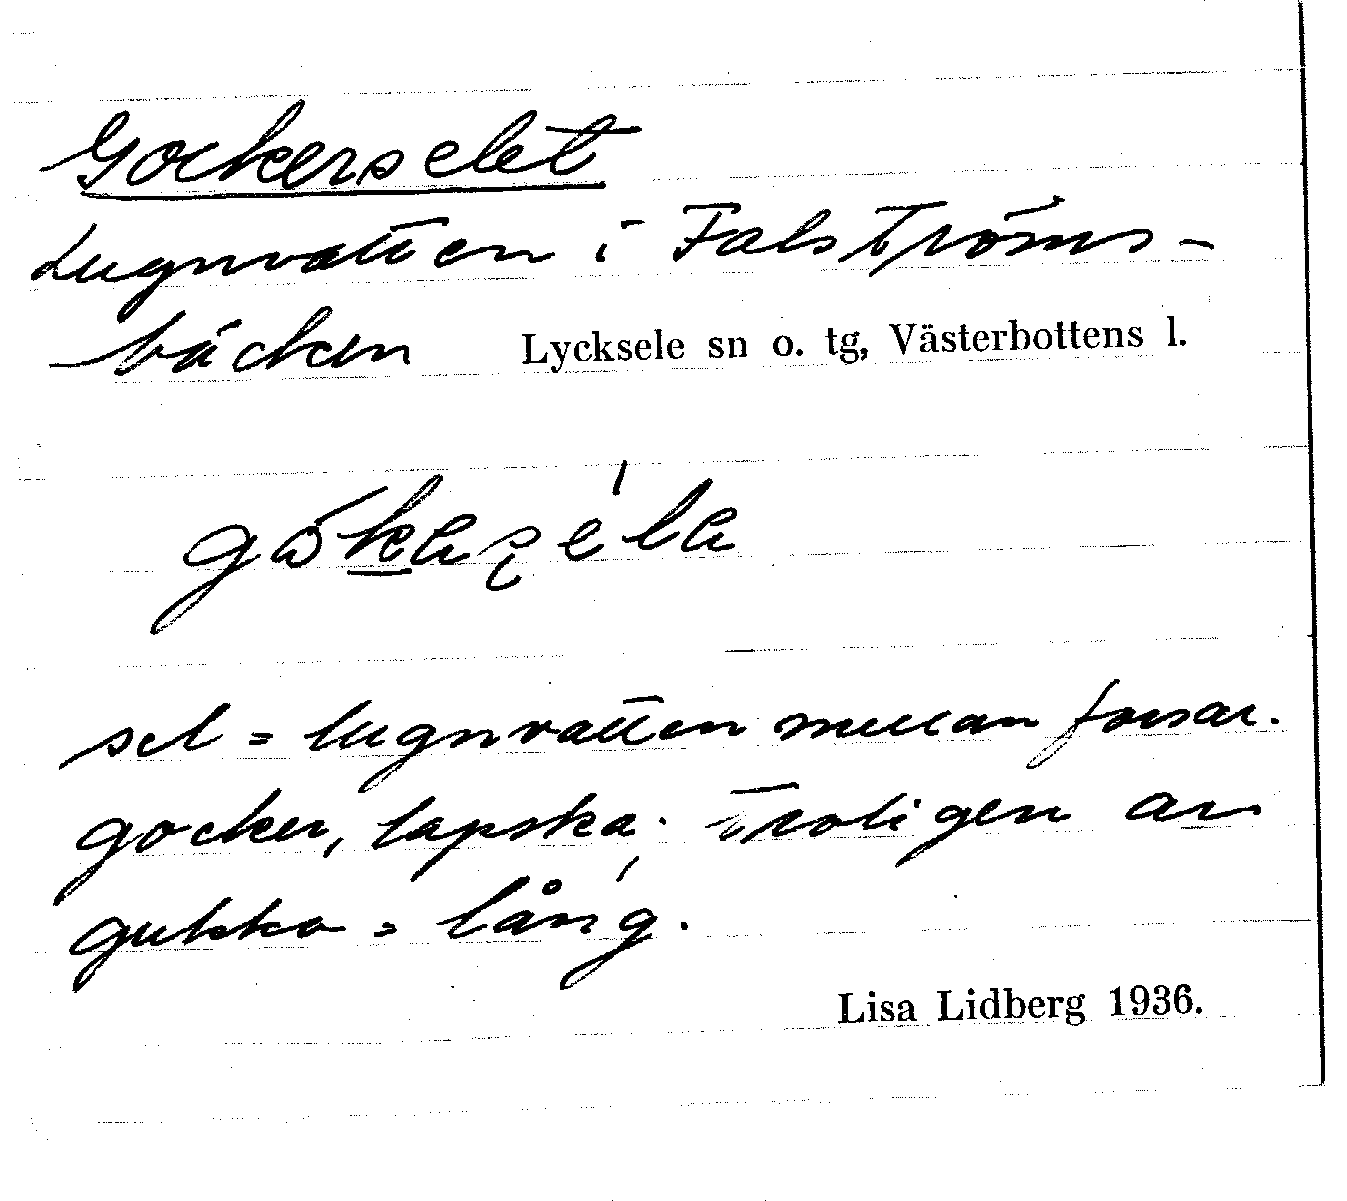 Gockerselet
Lugnvatten i Falströms-
bäcken Lycksele sn o. tg, Västerbottens l.
sel = lugnvatten mellan forsar.
gocker, lapska. Troligen av
gukko = lång.
Lisa Lidberg 1936.